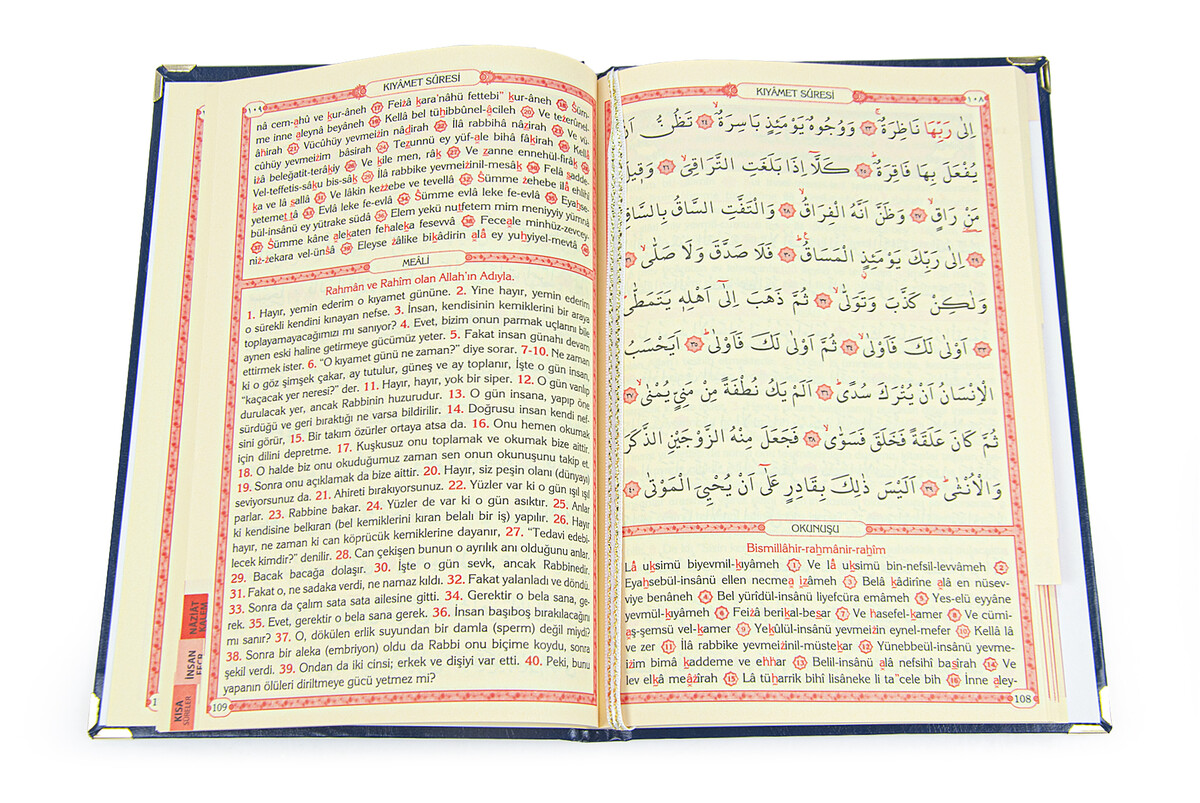 KIYÂMET SÛRESİ
١٠٨
اِلٰى رَبِّهَا نَاظِرَةٌۚ ٢٣ وَوُجُوهٌ يَوْمَئِذٍ بَاسِرَةٌۙ ٢٤ تَظُنُّ
يُفْعَلَ بِهَا فَاقِرَةٌۜ ٢٥ كَلَّٓا اِذَا بَلَغَتِ التَّرَاقِيَۙ ٢٦ وَقٖيلَ
مَنْ رَاقٍۙ ٢٧ وَظَنَّ اَنَّهُ الْفِرَاقُۙ ٢٨ وَالْتَفَّتِ السَّاقُ بِالسَّاقِ
٢٩ اِلٰى رَبِّكَ يَوْمَئِذٍ الْمَسَاقُۜ ٣٠ فَلَا صَدَّقَ وَلَا صَلّٰىۙ
وَلٰكِنْ كَذَّبَ وَتَوَلّٰىۙ ٣٢ ثُمَّ ذَهَبَ اِلٰٓى اَهْلِهٖ يَتَمَطّٰىۜ
٣٣ اَوْلٰى لَكَ فَاَوْلٰىۙ ٣٤ ثُمَّ اَوْلٰى لَكَ فَاَوْلٰىۜ ٣٥ اَيَحْسَبُ
الْاِنْسَانُ اَنْ يُتْرَكَ سُدًىۜ ٣٦ اَلَمْ يَكُ نُطْفَةً مِنْ مَنِيٍّ يُمْنٰىۙ ٣٧
ثُمَّ كَانَ عَلَقَةً فَخَلَقَ فَسَوّٰىۙ ٣٨ فَجَعَلَ مِنْهُ الزَّوْجَيْنِ الذَّكَرَ
وَالْاُنْثٰىۜ ٣٩ اَلَيْسَ ذٰلِكَ بِقَادِرٍ عَلٰٓى اَنْ يُحْيِيَ الْمَوْتٰى ٤٠
OKUNUŞU
Bismillâhir-rahmânir-rahîm
Lâ uksimü biyevmil-kıyâmeh 1 Ve lâ uksimü bin-nefsil-levvâmeh 2
Eyahsebül-insânü ellen necmea izâmeh 3 Belâ kâdirîne alâ en nüsev-
viye benâneh 4 Bel yürîdül-insânü liyefcüra emâmeh 5 Yes-elü eyyâne
yevmül-kıyâmeh 6 Feizâ berikal-besar 7 Ve hasefel-kamer 8 Ve cümi-
aş-şemsü vel-kamer 9 Yekûlül-insânü yevmeizin eynel-mefer 10 Kellâ lâ
ve zer 11 İlâ rabbike yevmeizinil-müstekar 12 Yünebbeül-insânü yevme-
izim bimâ kaddeme ve ehhar 13 Belil-insânü alâ nefsihî basîrah 14 Ve
lev elkâ meâzîrah 15 Lâ tüharrik bihî lisâneke li ta”cele bih 16 İnne aley-
108
KIYÂMET SÛRESİ
١٠٩
nâ cem-ahû ve kur-âneh 17 Feizâ kara’nâhü fettebi” kur-âneh 18 Süm-
me inne aleynâ beyâneh 19 Kellâ bel tühibbûnel-âcileh 20 Ve tezerûnel-
âhirah 21 Vücûhüy yevmeizin nâdirah 22 İlâ rabbihâ nâzirah 23 Ve vü-
cûhüy yevmeizim bâsirah 24 Tezunnü ey yüf-ale bihâ fâkirah 25 Kellâ
izâ beleğatit-terâkıy 26 Ve kîle men, râk 27 Ve zanne ennehül-firâk 28
Vel-teffetis-sâku bis-sâk 29 İlâ rabbike yevmeizinil-mesâk 30 Felâ sadde-
ka ve lâ sallâ 31 Ve lâkin kezzebe ve tevellâ 32 Sümme zehebe ilâ ehlihî
yetemet tâ 33 Evlâ leke fe-evlâ 34 Sümme evlâ leke fe-evlâ 35 Eyahse-
bül-insânü ey yütrake südâ 36 Elem yekü nutfetem mim meniyyiy yümnâ
37 Sümme kâne alekaten fehaleka fesevvâ 38 Feceale minhüz-zevcey-
niz-zekara vel-ünsâ 39 Eleyse zâlike bikâdirin alâ ey yuhyiyel-mevtâ 40
MEÂLİ
Rahmân ve Rahîm olan Allah’ın Adıyla.
1. Hayır, yemin ederim o kıyamet gününe. 2. Yine hayır, yemin ederim
o sürekli kendini kınayan nefse. 3. İnsan, kendisinin kemiklerini bir araya
toplayamayacağımızı mı sanıyor? 4. Evet, bizim onun parmak uçlarını bile
aynen eski haline getirmeye gücümüz yeter. 5. Fakat insan günahı devam
ettirmek ister. 6. “O kıyamet günü ne zaman?” diye sorar. 7-10. Ne zaman
ki o göz şimşek çakar, ay tutulur, güneş ve ay toplanır, İşte o gün insan,
“kaçacak yer neresi?” der. 11. Hayır, hayır, yok bir siper. 12. O gün varılıp
durulacak yer, ancak Rabbinin huzurudur. 13. O gün insana, yapıp öne
sürdüğü ve geri bıraktığı ne varsa bildirilir. 14. Doğrusu insan kendi nef-
sini görür, 15. Bir takım özürler ortaya atsa da. 16. Onu hemen okumak
için dilini depretme. 17. Kuşkusuz onu toplamak ve okumak bize aittir.
18. O halde biz onu okuduğumuz zaman sen onun okunuşunu takip et.
19. Sonra onu açıklamak da bize aittir. 20. Hayır, siz peşin olanı (dünyayı)
seviyorsunuz da. 21. Ahireti bırakıyorsunuz. 22. Yüzler var ki o gün ışıl ışıl
parlar. 23. Rabbine bakar. 24. Yüzler de var ki o gün asıktır. 25. Anlar
ki kendisine belkıran (bel kemiklerini kıran belalı bir iş) yapılır. 26. Hayır
hayır, ne zaman ki can köprücük kemiklerine dayanır, 27. “Tedavi edebi-
lecek kimdir?” denilir. 28. Can çekişen bunun o ayrılık anı olduğunu anlar.
29. Bacak bacağa dolaşır. 30. İşte o gün sevk, ancak Rabbinedir.
31. Fakat o, ne sadaka verdi, ne namaz kıldı. 32. Fakat yalanladı ve döndü.
33. Sonra da çalım sata sata ailesine gitti. 34. Gerektir o bela sana, ge-
rek. 35. Evet, gerektir o bela sana gerek. 36. İnsan başıboş bırakılacağını
mı sanır? 37. O, dökülen erlik suyundan bir damla (sperm) değil miydi?
38. Sonra bir aleka (embriyon) oldu da Rabbi onu biçime koydu, sonra
şekil verdi. 39. Ondan da iki cinsi; erkek ve dişiyi var etti. 40. Peki, bunu
yapanın ölüleri diriltmeye gücü yetmez mi?
109
NÂZİÂT
KALEM
İNSAN
FECR
KISA
SÛRELER